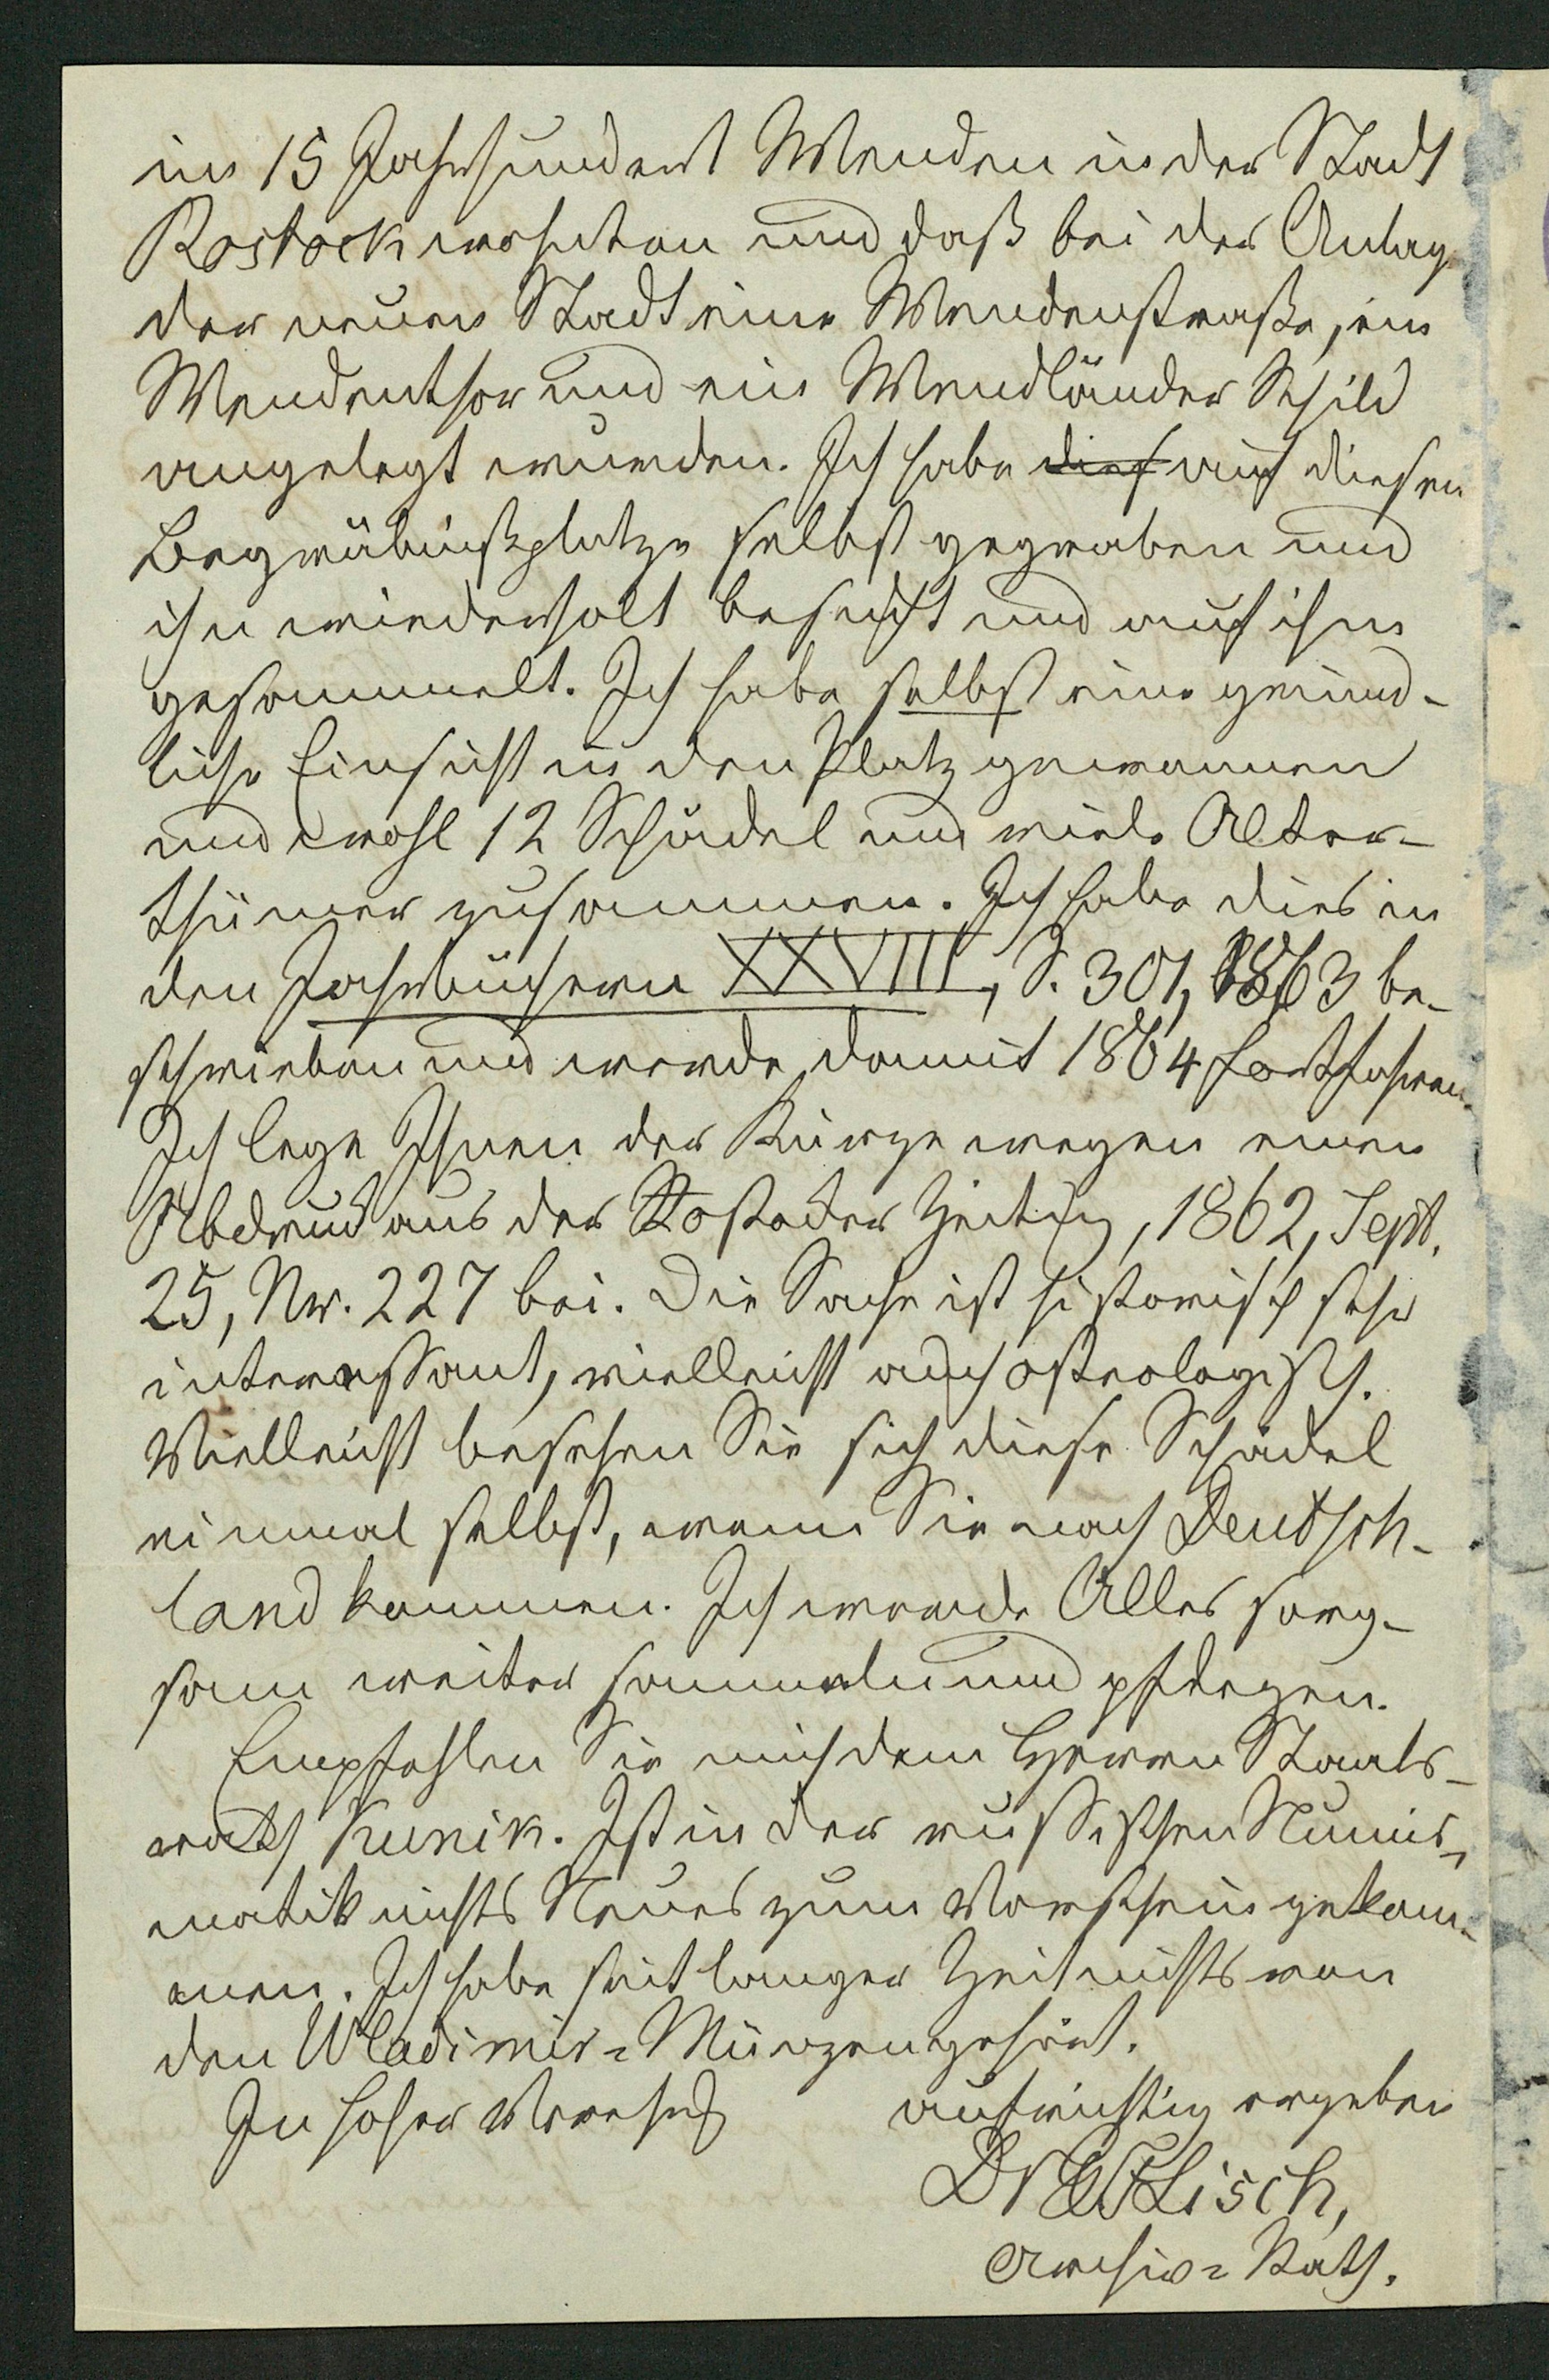 im 15 Jahrhundert Wenden in der Stadt
Rostock wohnten und daß bei der Anlage
der neuen Stadt eine Wendenstraße, ein
Wendenthor und ein Wendländer Schild
angelegt wurden. Ich habe auf diesem
Begräbnißplatze selbst gegraben und
ihn wiederholt besucht und auf ihm
gesammelt. Ich habe selbst eine gründ-
liche Einsicht in den Platz gewonnen
und wohl 12 Schädel und viele Alter-
thümer zusammen. Ich habe dies in
den Jahrbüchern XXVIII, S. 301, 1863 be-
schrieben und werde damit 1864 fortfahren.
Ich lege Ihnen der Kürze wegen einen
Abdruck aus der Rostocker Zeitung, 1862, Sept.
25, Nr. 227 bei. Die Sache ist historisch sehr
interessant, vielleicht auch osteologisch.
Vielleicht besehen Sie sich diese Schädel
einmal selbst, wenn Sie nach Deutsch-
land kommen. Ich werde Alles sorg-
sam weiter sammeln und pflegen.
Empfehlen Sie mich dem Herrn Staats-
rath Kunik. Ist in der russischen Numis-
matik nichts Neues zum Vorschein gekom-
men. Ich habe seit langer Zeit nichts von
den Wladimir-Münzen gehört.
In hoher Verehrung aufrichtig ergeben
Dr GCF Lisch,
Archiv-Rath.